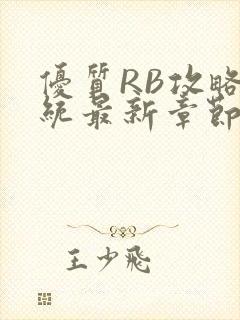 優質RB攻略
統最新章節
王少飛